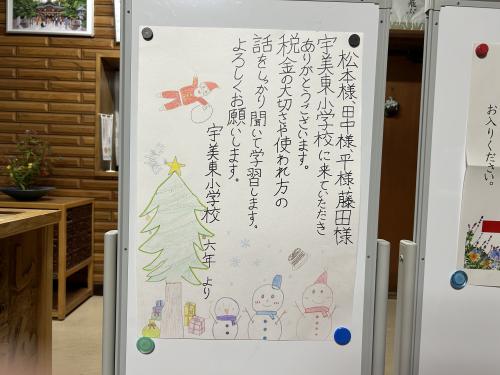 松本様、田中様、平様、藤田様
宇美東小学校に来ていただき
ありがとうございます。
税金の大切さや使われ方の
話をしっかり聞いて学習します。
よろしくお願いします。
宇美東小学校 六年 より
お入りください。